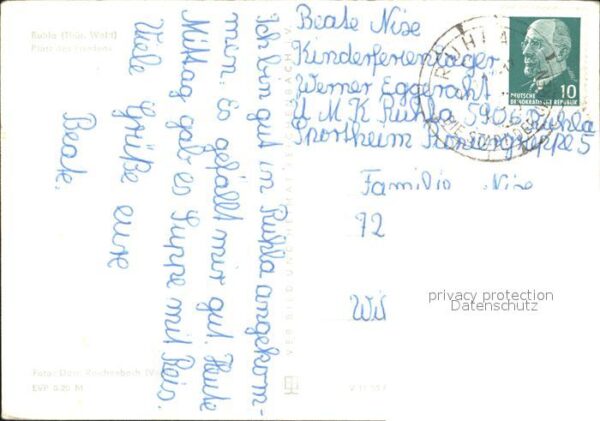 Ruhla (Thür. Wald)
Platz des Friedens
Ich bin gut in Ruhla angekom-
men. Es gefällt mir gut. Heute
Mittag gab es Suppe mit Reis.
Viele Grüße eure
Beate.
Beate Nise
Kinderferienlager
Werner Eggerath
U M K Ruhla 5906 Ruhla
Sportheim 5
Familie Nise
92
Wil
RUHLA
10
DEUTSCHE
DEMOKRATISCHE REPUBLIK
VEB BILD UND HEIMAT REICHENBACH I.V.
Foto: Darr, Reichenbach
EVP 0.20 M
privacy protection
Datenschutz